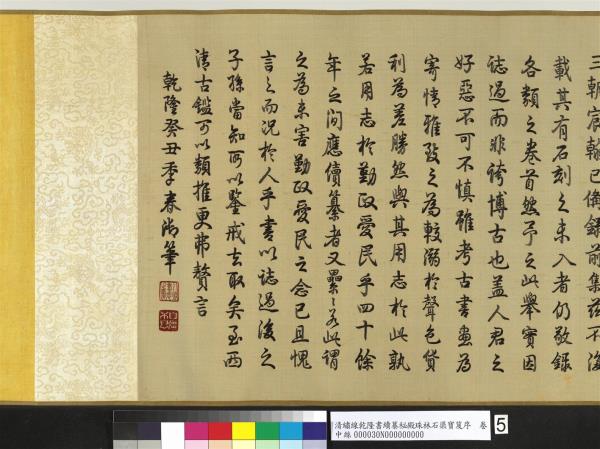 三朝宸翰已備錄前集茲不復
載其有石刻之未入者仍敬錄
各類之卷首然予之此舉實因
誌過而非誇博古也蓋人君之
好惡不可不慎雖考古書畫為
寄情雅致之為較溺於聲色貨
利為差勝然與其用志於此孰
若用志於勤政愛民乎四十餘
年之間應續纂者又累累若此謂
之為未害勤政愛民之念已且愧
言之而況於人乎書以誌過後之
子孫當知所以鑒戒去取矣至西
清古鑑可以類推更弗贅言
乾隆癸丑季春御筆
清繡線乾隆書續纂秘殿珠林石渠寶笈序 卷
中絲000030N000000000
5